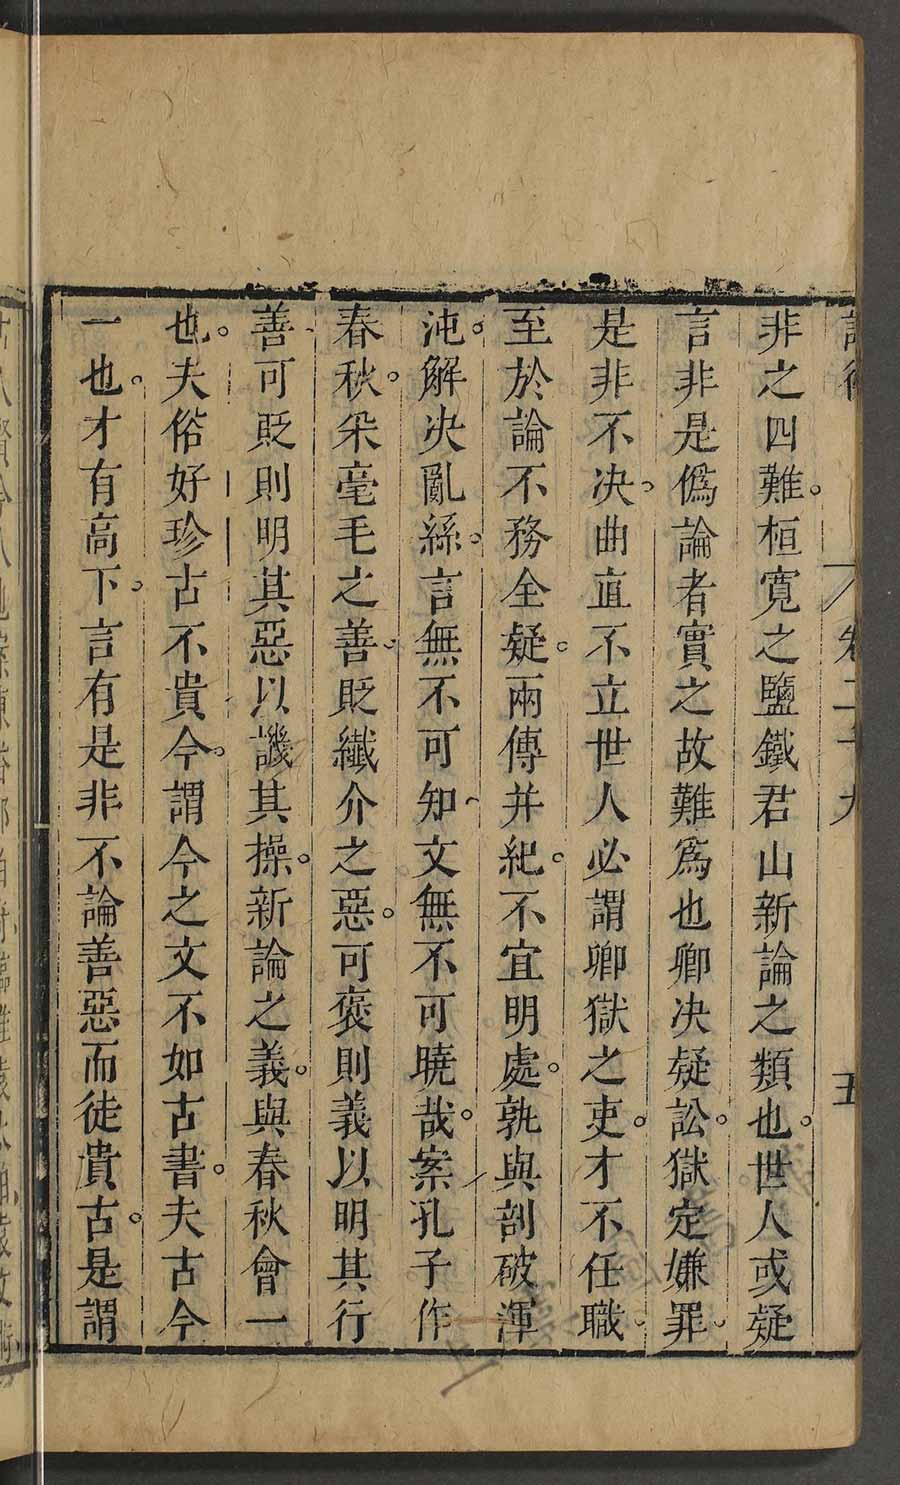 卷二十九
五
非之四難。桓寬之鹽鐵君山新論之類也。世人或疑
言非是僞論者實之故難爲也卿决疑訟。獄定嫌罪。
是非不决。曲直不立世人必謂卿獄之吏。才不任職
至於論不務全疑。兩傳并紀。不宜明處。孰與剖破渾
沌。解决亂絲。言無不可知文無不可曉哉。案孔子作
春秋。采毫毛之善。貶纖介之惡。可褒則義以明其行
善可貶則明其惡以譏其操。新論之義。與春秋會一
也。夫俗好珍古不貴今。謂今之文不如古書。夫古今
一也。才有高下。言有是非不論善惡而徒貴古。是謂